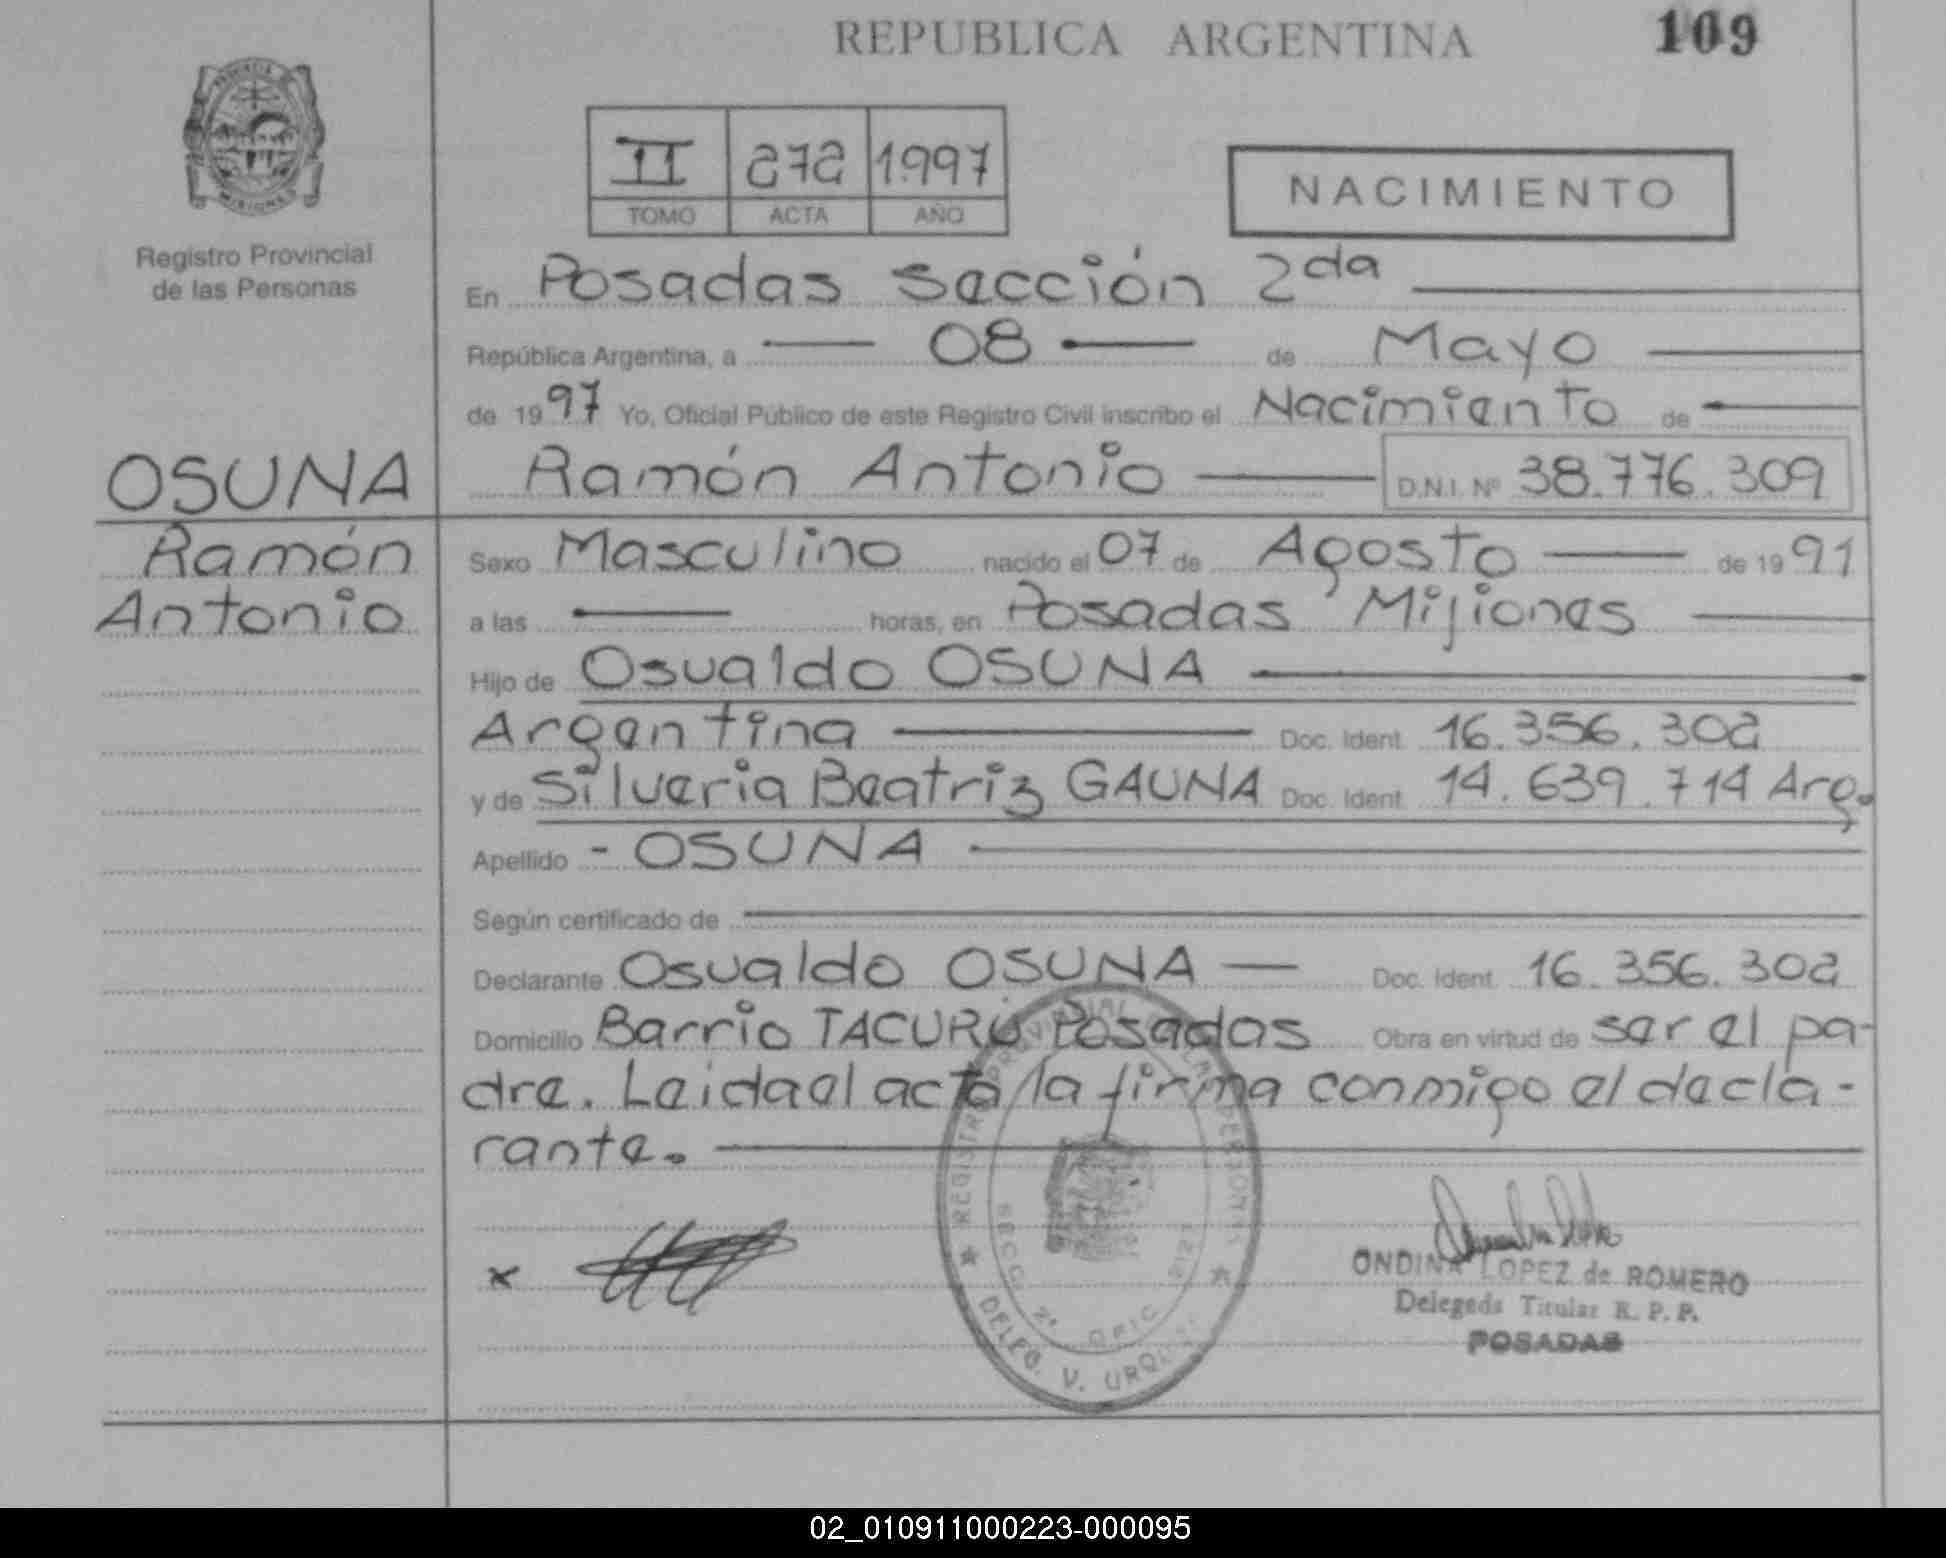 REPUBLICA ARGENTINA
109
II 272 1997
TOMO ACTA AÑO
NACIMIENTO
Registro Provincial
de las Personas
En Posadas Sección 2da
República Argentina, a 08 de Mayo
de 1997 Yo, Oficial Público de este Registro Civil inscribo el Nacimiento de
OSUNA
Ramón Antonio D.N.I. Nº 38.776.309
Ramón
Antonio
Sexo Masculino nacido el 07 de Agosto de 1991
a las horas, en Posadas Misiones
Hijo de Osvaldo OSUNA
Argentina Doc. Ident. 16.356.302
y de Silveria Beatriz GAUNA Doc. Ident. 14.639.714 Arg.
Apellido - OSUNA
Según certificado de
Declarante Osvaldo OSUNA Doc. Ident. 16.356.302
Domicilio Barrio TACURÚ Posadas Obra en virtud de ser el pa-
dre. Leida el acta la firma conmigo el decla-
rante.
x
REGISTRO PROVINCIAL DE LAS PERSONAS
SECC. 2ª OFIC.
DELEG. V. URQUIZA
ONDINA LOPEZ de ROMERO
Delegada Titular R. P. P.
POSADAS
02_010911000223-000095